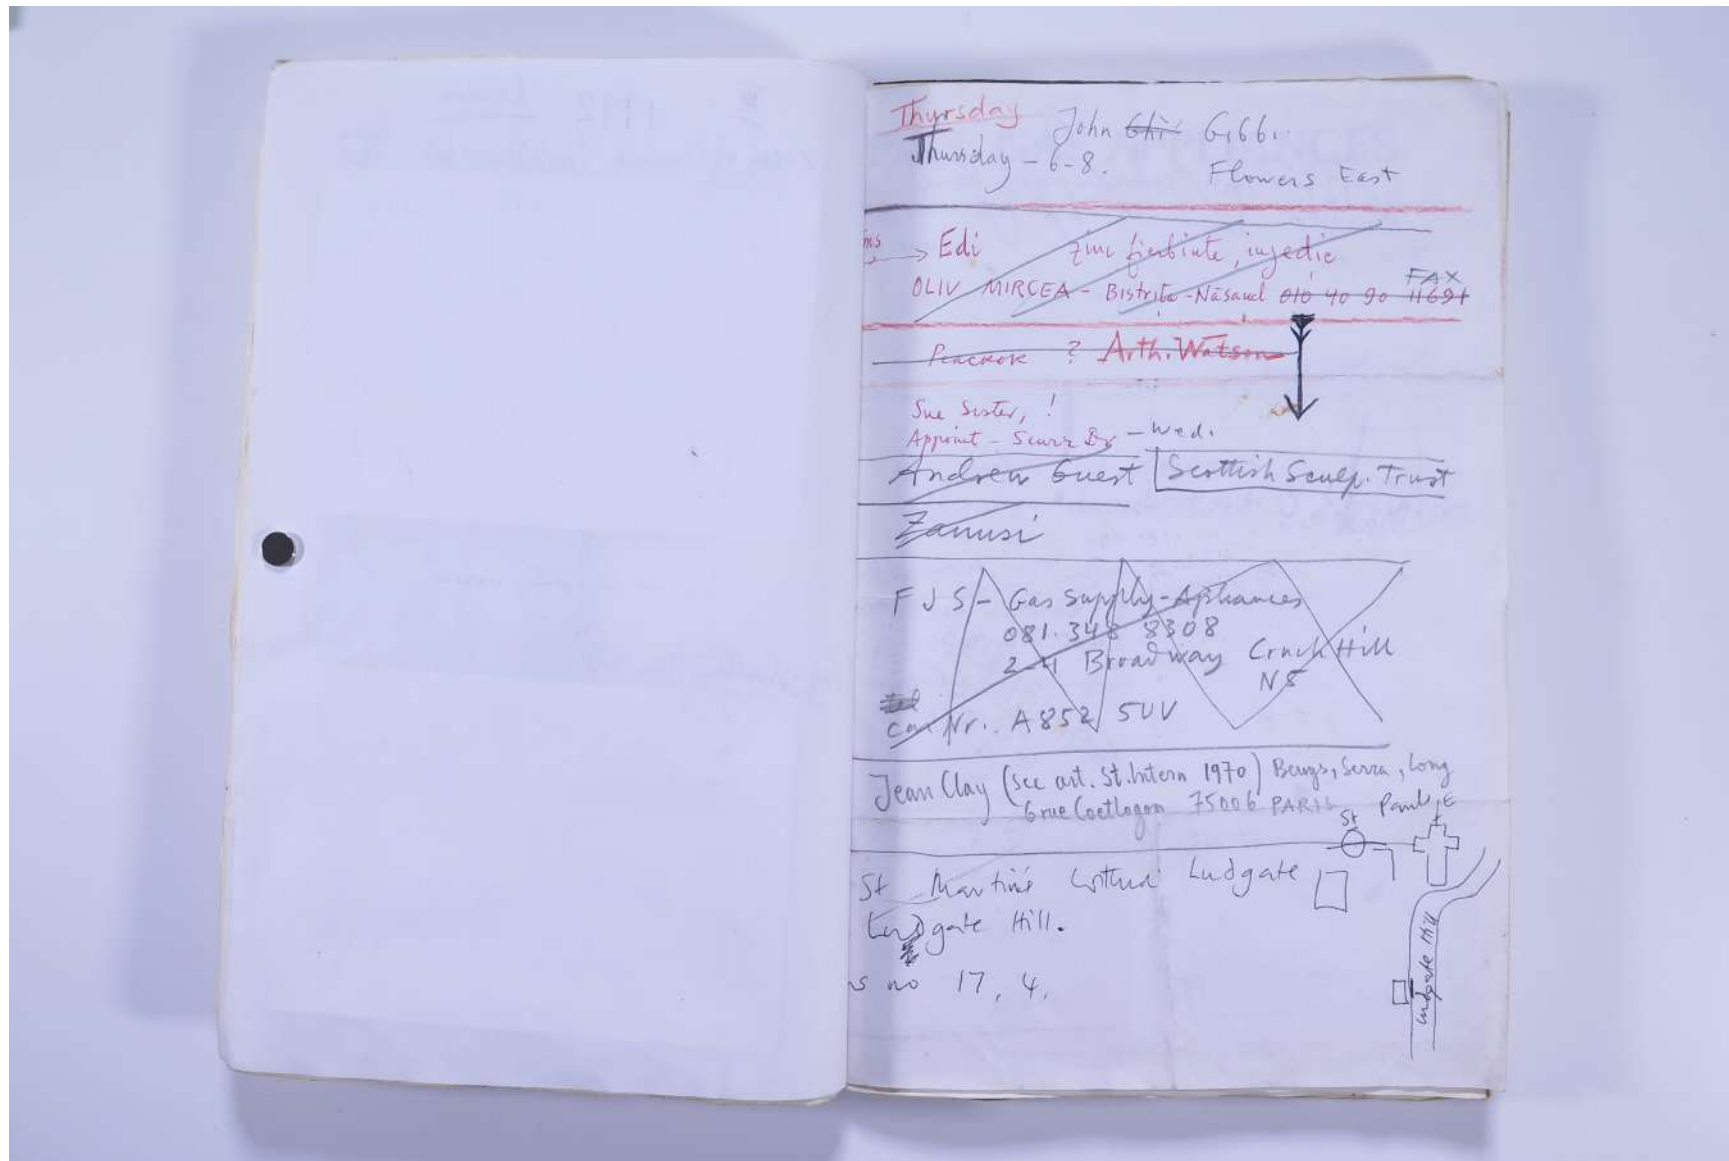 Thursday John Gibb
Thursday - 6-8. Flowers East
→ Edi zinc fierbinte, injectie
FAX
OLIV MIRCEA - Bistrita - Năsaud 010 40 90 11691
Peackok ? Arth. Watson
Sue Sister, !
Appoint - - Wed.
Andrew Guest Scottish Sculp. Trust
Zanusi
F J S - Gas Supply - Apliances
081. 348 8308
2-4 Broadway Cruch Hill
N8
car Nr. A852 5UV
Jean Clay (see art. St. Intern 1970) Beuys, Serra, Long
6 rue Coetlogon 75006 PARIS
St Paul E
St Martins within Ludgate
Ludgate Hill.
no 17, 4,
Ludgate Hill